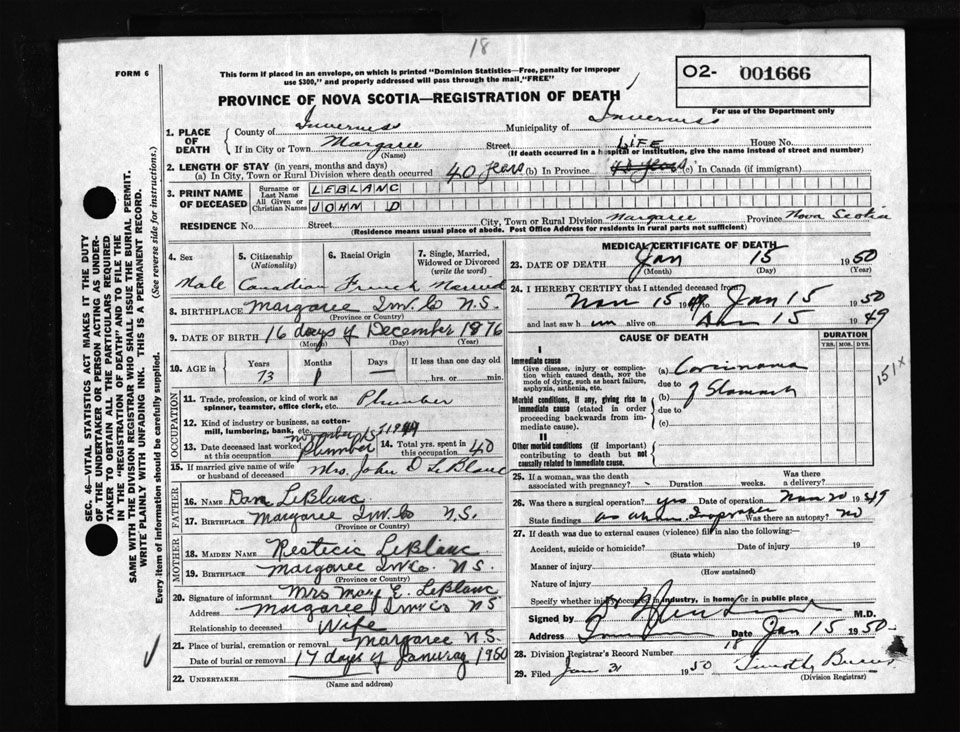 18
FORM 6
This form if placed in an envelope, on which is printed "Dominion Statistics—Free, penalty for improper
use $300," and properly addressed will pass through the mail, "FREE"
O2- 001666
For use of the Department only
PROVINCE OF NOVA SCOTIA—REGISTRATION OF DEATH
SEC. 46—VITAL STATISTICS ACT MAKES IT THE DUTY
OF THE UNDERTAKER OR PERSON ACTING AS UNDER-
TAKER TO OBTAIN ALL THE PARTICULARS REQUIRED
IN THE "REGISTRATION OF DEATH" AND TO FILE THE
SAME WITH THE DIVISION REGISTRAR WHO SHALL ISSUE THE BURIAL PERMIT.
WRITE PLAINLY WITH UNFADING INK. THIS IS A PERMANENT RECORD.
Every item of information should be carefully supplied. (See reverse side for instructions.)
1. PLACE OF DEATH
County of Inverness Municipality of Inverness
If in City or Town Margaree Street House No.
(Name) (If death occurred in a hospital or institution, give the name instead of street and number)
2. LENGTH OF STAY (in years, months and days)
(a) In City, Town or Rural Division where death occurred 40 years (b) In Province LIFE (c) In Canada (if immigrant)
3. PRINT NAME OF DECEASED
Surname or Last Name LEBLANC
All Given or Christian Names JOHN D
RESIDENCE No. Street City, Town or Rural Division Margaree Province Nova Scotia
(Residence means usual place of abode. Post Office Address for residents in rural parts not sufficient)
4. Sex 5. Citizenship (Nationality) 6. Racial Origin 7. Single, Married, Widowed or Divorced (write the word)
Male Canadian French Married
8. BIRTHPLACE Margaree Inv. Co N.S.
(Province or Country)
9. DATE OF BIRTH 16 days of December 1876
(Month) (Day) (Year)
10. AGE in Years Months Days If less than one day old
73 1 — hrs. or min.
OCCUPATION
11. Trade, profession, or kind of work as spinner, teamster, office clerk, etc. Plumber
12. Kind of industry or business, as cotton-mill, lumbering, bank, etc.
13. Date deceased last worked at this occupation November 1949 Plumber 14. Total yrs. spent in this occupation 40
15. If married give name of wife or husband of deceased Mrs. John D LeBlanc
FATHER
16. NAME Dan LeBlanc
17. BIRTHPLACE Margaree Inv. Co N.S.
(Province or Country)
MOTHER
18. MAIDEN NAME LeBlanc
19. BIRTHPLACE Margaree Inv Co. N S.
(Province or Country)
20. Signature of informant Mrs Mary E. LeBlanc
Address Margaree Inv Co NS
Relationship to deceased Wife
21. Place of burial, cremation or removal Margaree N.S.
Date of burial or removal 17 days of Januray 1950
22. UNDERTAKER
(Name and address)
MEDICAL CERTIFICATE OF DEATH
23. DATE OF DEATH Jan 15 1950
(Month) (Day) (Year)
24. I HEREBY CERTIFY that I attended deceased from
Nov 15 1949 to Jan 15 1950
and last saw him alive on 15 1949
CAUSE OF DEATH DURATION
YRS. MOS. DYS.
I
Immediate cause
Give disease, injury or complication which caused death, NOT the mode of dying, such as heart failure, asphyxia, asthenia, etc.
(a) Carcinoma
due to
Morbid conditions, if any, giving rise to immediate cause (stated in order proceeding backwards from immediate cause).
(b) of Stomach
due to
(c)
II
Other morbid conditions (if important) contributing to death but not causally related to immediate cause.
151 x
25. If a woman, was the death associated with pregnancy? Duration weeks Was there a delivery?
26. Was there a surgical operation? yes Date of operation Nov 20 1949
State findings as above Inoperable Was there an autopsy? No
27. If death was due to external causes (violence) fill in also the following:
Accident, suicide or homicide? Date of injury 19
(State which)
Manner of injury
(How sustained)
Nature of injury
Specify whether injury occurred in industry, in home or in public place
Signed by M.D.
Address Date Jan 15 1950
28. Division Registrar's Record Number 18
29. Filed Jan 31 1950 Timothy
(Division Registrar)